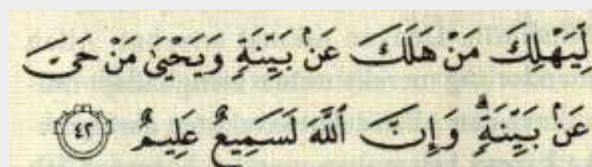 لِّيَهْلِكَ مَنْ هَلَكَ عَنۢ بَيِّنَةٍ وَيَحْيَىٰ مَنْ حَىَّ
عَنۢ بَيِّنَةٍۗ وَإِنَّ ٱللَّهَ لَسَمِيعٌ عَلِيمٌ ٤٢